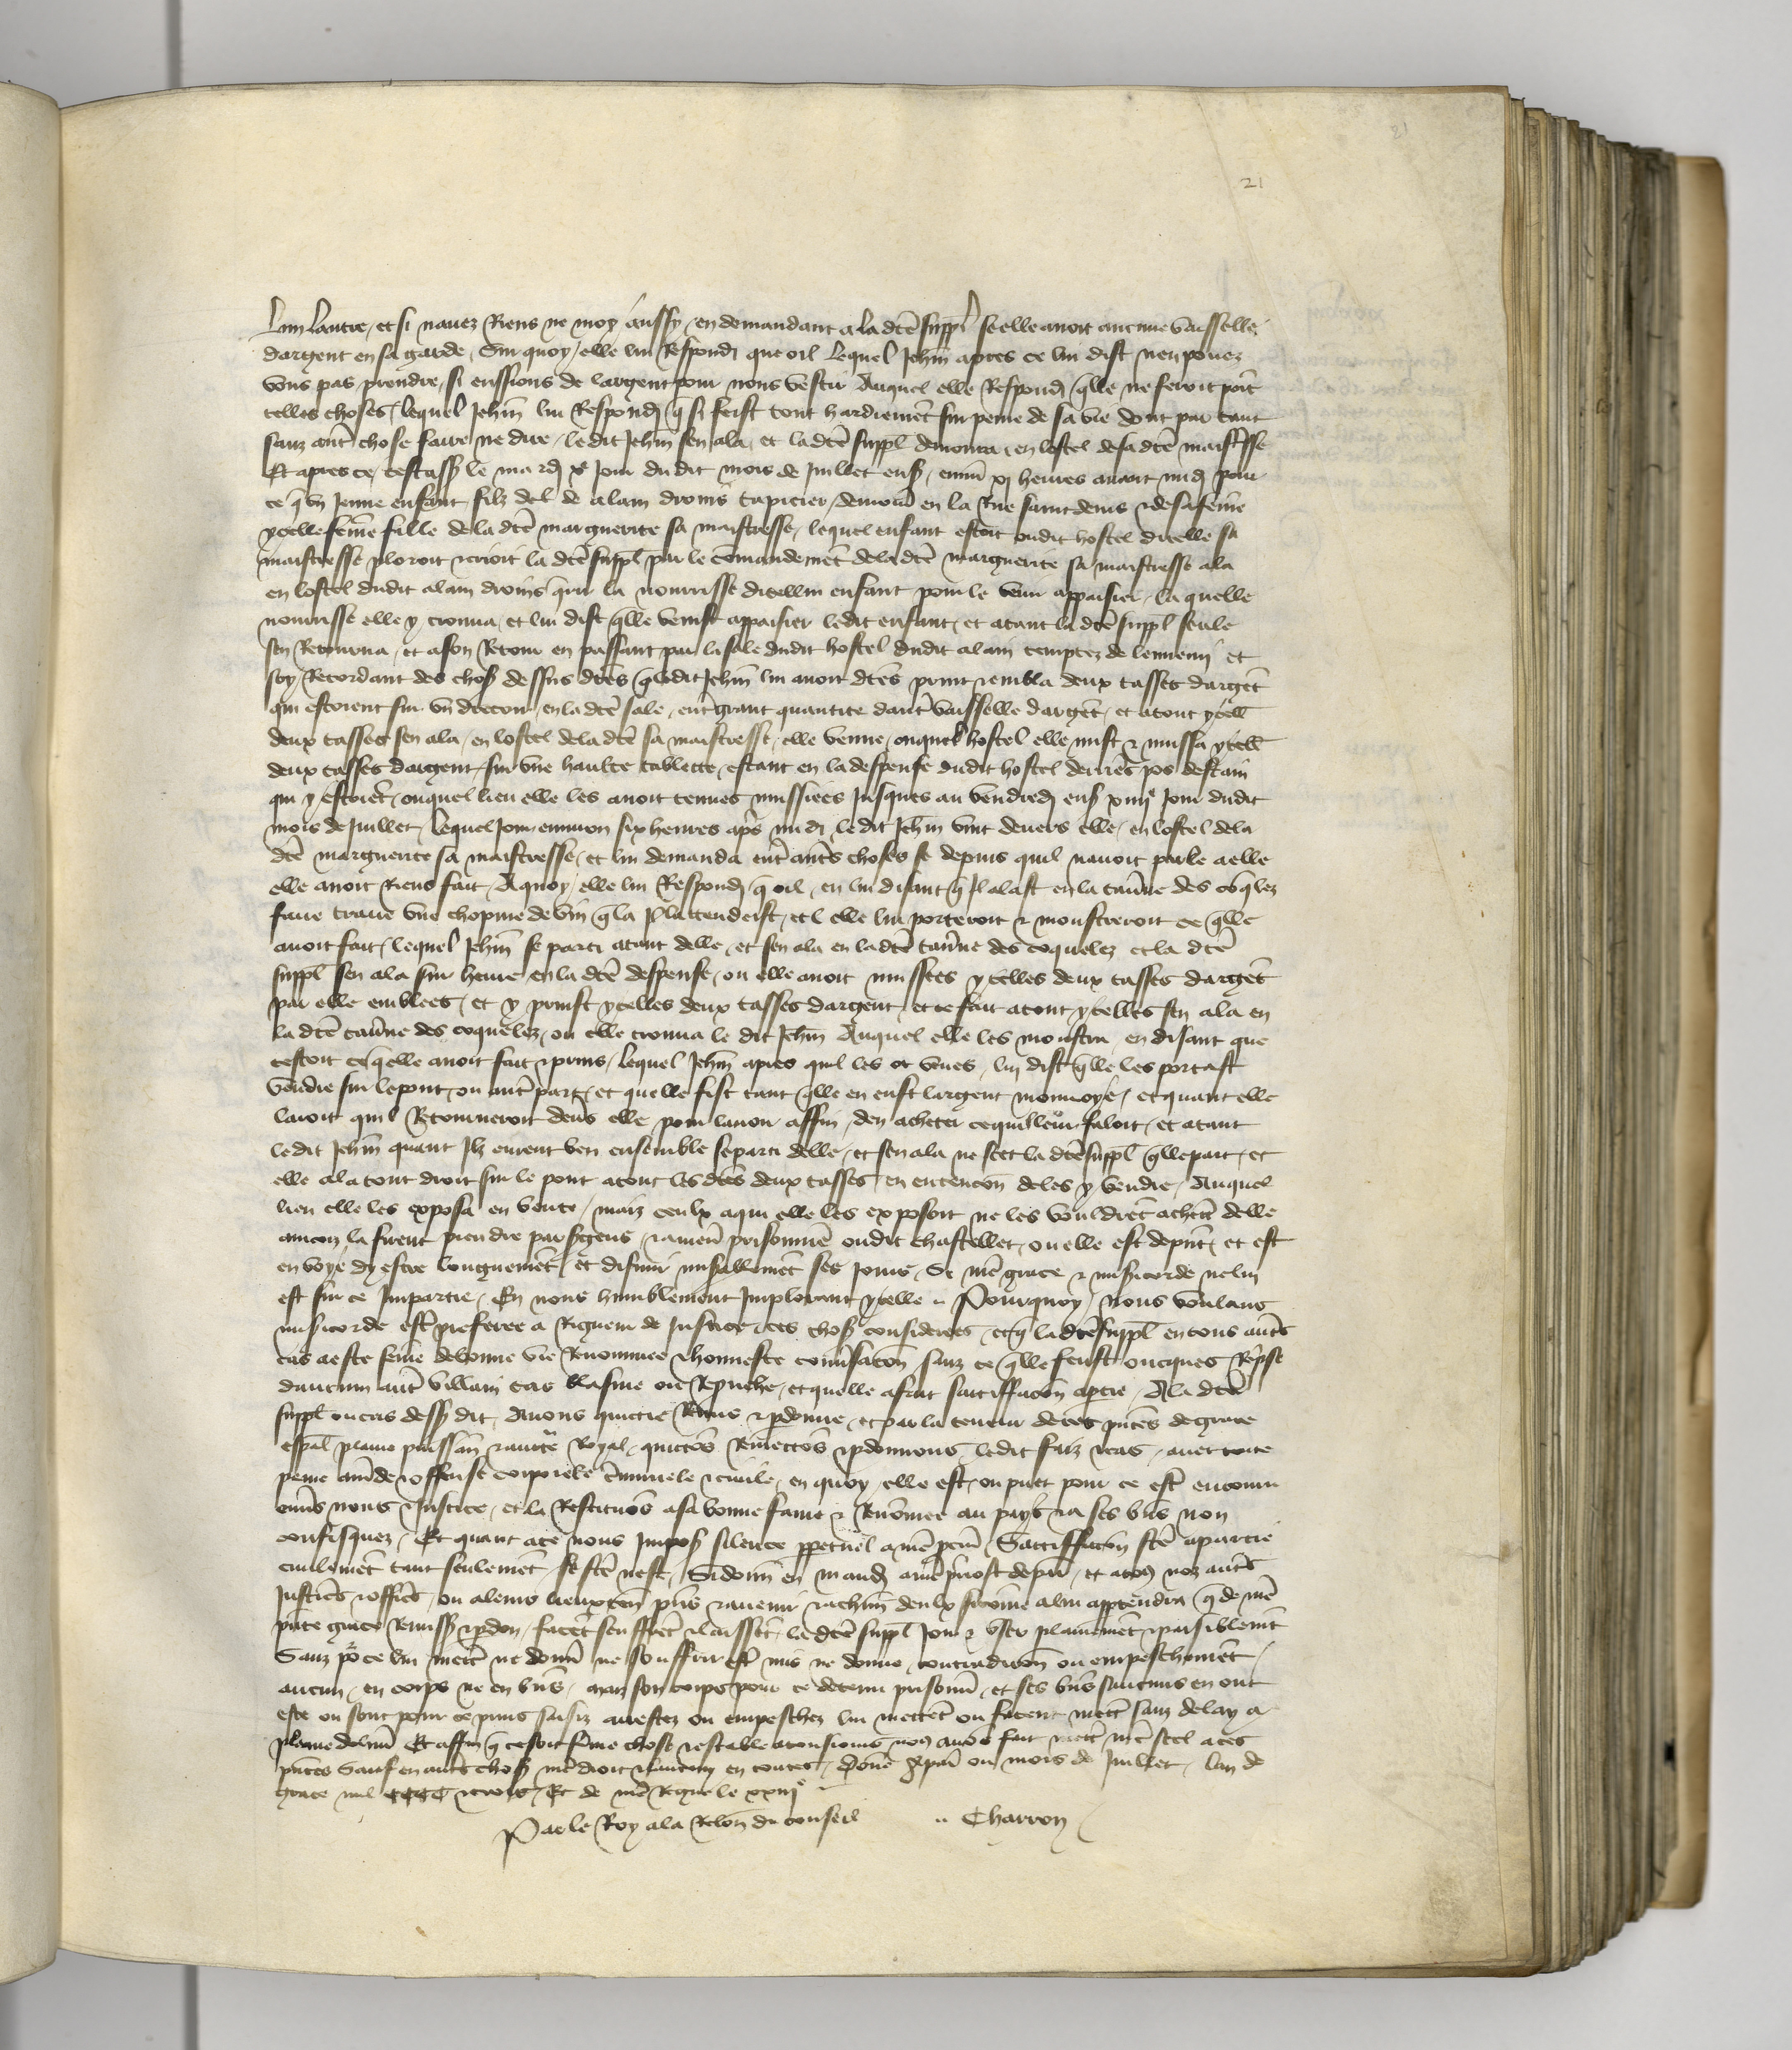 21
21
Lun lautre / et si navez Riens ne moy aussy / en demandant a la dte suppl se elle avoit aucune vaisselle
dargent en sa garde / Sur quoy / elle lui Respondi que oil Lequel Jehan apres ce lui dist nen povez
vous pas prendre / si eussions de largent pour nous vestir Auquel elle Respondi qlle ne feroit point
telles choses / lequel Jehan lui Respondi q si feist tout hardiement sur peine de sa vie dont par tant
sanz aut chose faire ne dire / ledit Jehan sen ala / et la dte suppl demoura en lostel de sa dte maistresse
Et apres ce / cestass le mardi xe Jour dudit mois de Juillet ens / envin xj heures avant midi pour
ce q un Jeune enfant filz del de alain droins tapicier / demour en la Rue saint denis & de sa feme
ycelle feme fille de la dte marguerite sa maistresse / lequel enfant estoit oudit hostel dicelle sa
maistresse ploroit & crioit la dte suppl par le comandement de la dte marguerite sa maistresse ala
en lostel dudit alain droins querir la nourrisse dicellui enfant pour le venir appaisier / la quelle
nourrisse elle y trouva / et lui dist qlle venist appaisier ledit enfant / et atant la dte suppl seule
sen Retourna / et a son Retour en passant par la sale dudit hostel dudit alain temptez de lennemi et
soy Recordant des chos dessus dtes q ledit Jehan lui avoit dtes print & embla deux tasses dargent
qui estoient sur un drecou / en la dte sale / ent grant quantite daut vaisselle dargent / et atout ycell
deux tasses sen ala / en lostel de la dte sa maistresse / elle venue / ouquel hostel elle mist & mussa ycell
deux tasses dargent / sur une haulte tablette / estant en la despense dudit hostel derriere pos destain
qui y estoient / ouquel lieu elle les avoit tenues mussiees Jusques au vendredi ens xiiie Jour dudit
mois de Juillet / lequel Jour environ six heures aps midi / ledit Jehan vint devers elle / en lostel de la
dte marguerite sa maistresse / et lui demanda ent auts choses se depuis quil navoit parle a elle
elle avoit Riens fait / Aquoy / elle lui Respondi q oil / en lui disant q Jl alast en la taverne des coqlez
faire traire une chopine de vin q la Jl lattendeist / et elle lui porteroit & monstreroit ce qlle
avoit fait / lequel Jehan se parti atant delle / et sen ala en la dte taverne des coquelez et la dte
suppl sen ala sur heure en la dte despense / ou elle avoit mussees ycelles deux tasses dargent
par elle emblees / et y prinst ycelles deux tasses dargent / et ce fait atout ycelles sen ala en
la dte taverne des coquelez / ou elle trouva le dit Jehan Auquel elle les monstra / en disant que
cestoit ce quelle avoit fait & prins / Lequel Jehan apres quil les ot veues / lui dist qlle les portast
vendre sur le pont / ou aut part / et quelle fist tant qlle en eust largent monnoye / et quant elle
lauroit quil Retourneroit devs elle pour lavoir affin den acheter ce quil leur faloit / et atant
ledit Jehan quant Jlz eurent beu ensemble se parti delle / et sen ala ne scet la dte suppl qlle part / et
elle ala tout droit sur le pont atout les dtes deux tasses en entencon de les y vendre / Auquel
lieu elle les exposa en vente / maiz ceulx a qui elle les exposoit ne les vouldrent acheter delle
aincois la firent prendre par sergens / & amener prisonnie oudit chastellet / ou elle est depnt / et est
en voye dy estre longuement / et di fenir miserablement ses Jours / Se nre grace & misericorde ne lui
est sur ce Impartie / En nous humblement Implorant ycelle Pourquoy / Nous voulans
misericorde est preferee a Rigueur de Justice / ces chos considerees / et q la dte suppl en tous auts
cas a este feme de bonne vie Renommee & honneste conversacon sanz ce qlle feust oncques Reprise
daucun aut villain cas blasme ou Reprouche / et quelle a fait satisfacon a partie / A la dte
suppl ou cas dessus dit / Avons quictie Remis & pdonne / et par la teneur de ces pntes de grace
espal plaine puissance & auctte Royal / quictons Remectons & pdonnons / ledit faiz & cas / avec toute
peine amde & offense corporele criminele & civile / en quoy / elle est / ou puet pour ce est encourue
envs nous & Justice / et la Restituons a sa bonne fame & Renomee au pays & a ses bns non
confisquez / Et quant ace nous Imposons silence ppetuel a nre pcur / Satisfacon fte a partie
civilement tant seulement / se fte nest / Si donn en mand a nre prevost de par / et a tous noz auts
Justiciers & officiers / ou a leurs lieuxten pns & avenir & a chun deulx si come a lui appartendra q de nre
pnte grace Remission & pdon / facent seuffrent & laissent la dte suppl Jouir & user plainement & paisiblement
Sanz po ce lui mett ne donn ne souffrir est mis ne donne contradicon ou empeschement
aucun / en corps ne en bns / maiz son corps pour ce detenu prisonn / et ses bns saucuns en ont
este ou sont pour ce prins saisiz arrestez ou empeschez lui mettent ou facent mett sanz delay a
plaine delivr Et affin q ce soit ferme chose & estable a tousiours nous avons fait mett nre seel a ces
pntes Sauf en auts chos nre droit & lautrui en toutes / donne a par ou mois de Juillet / lan de
grace mil cccc & trois / Et de nre Regne le xxiije
Par le Roy a la Relon du conseil Charron